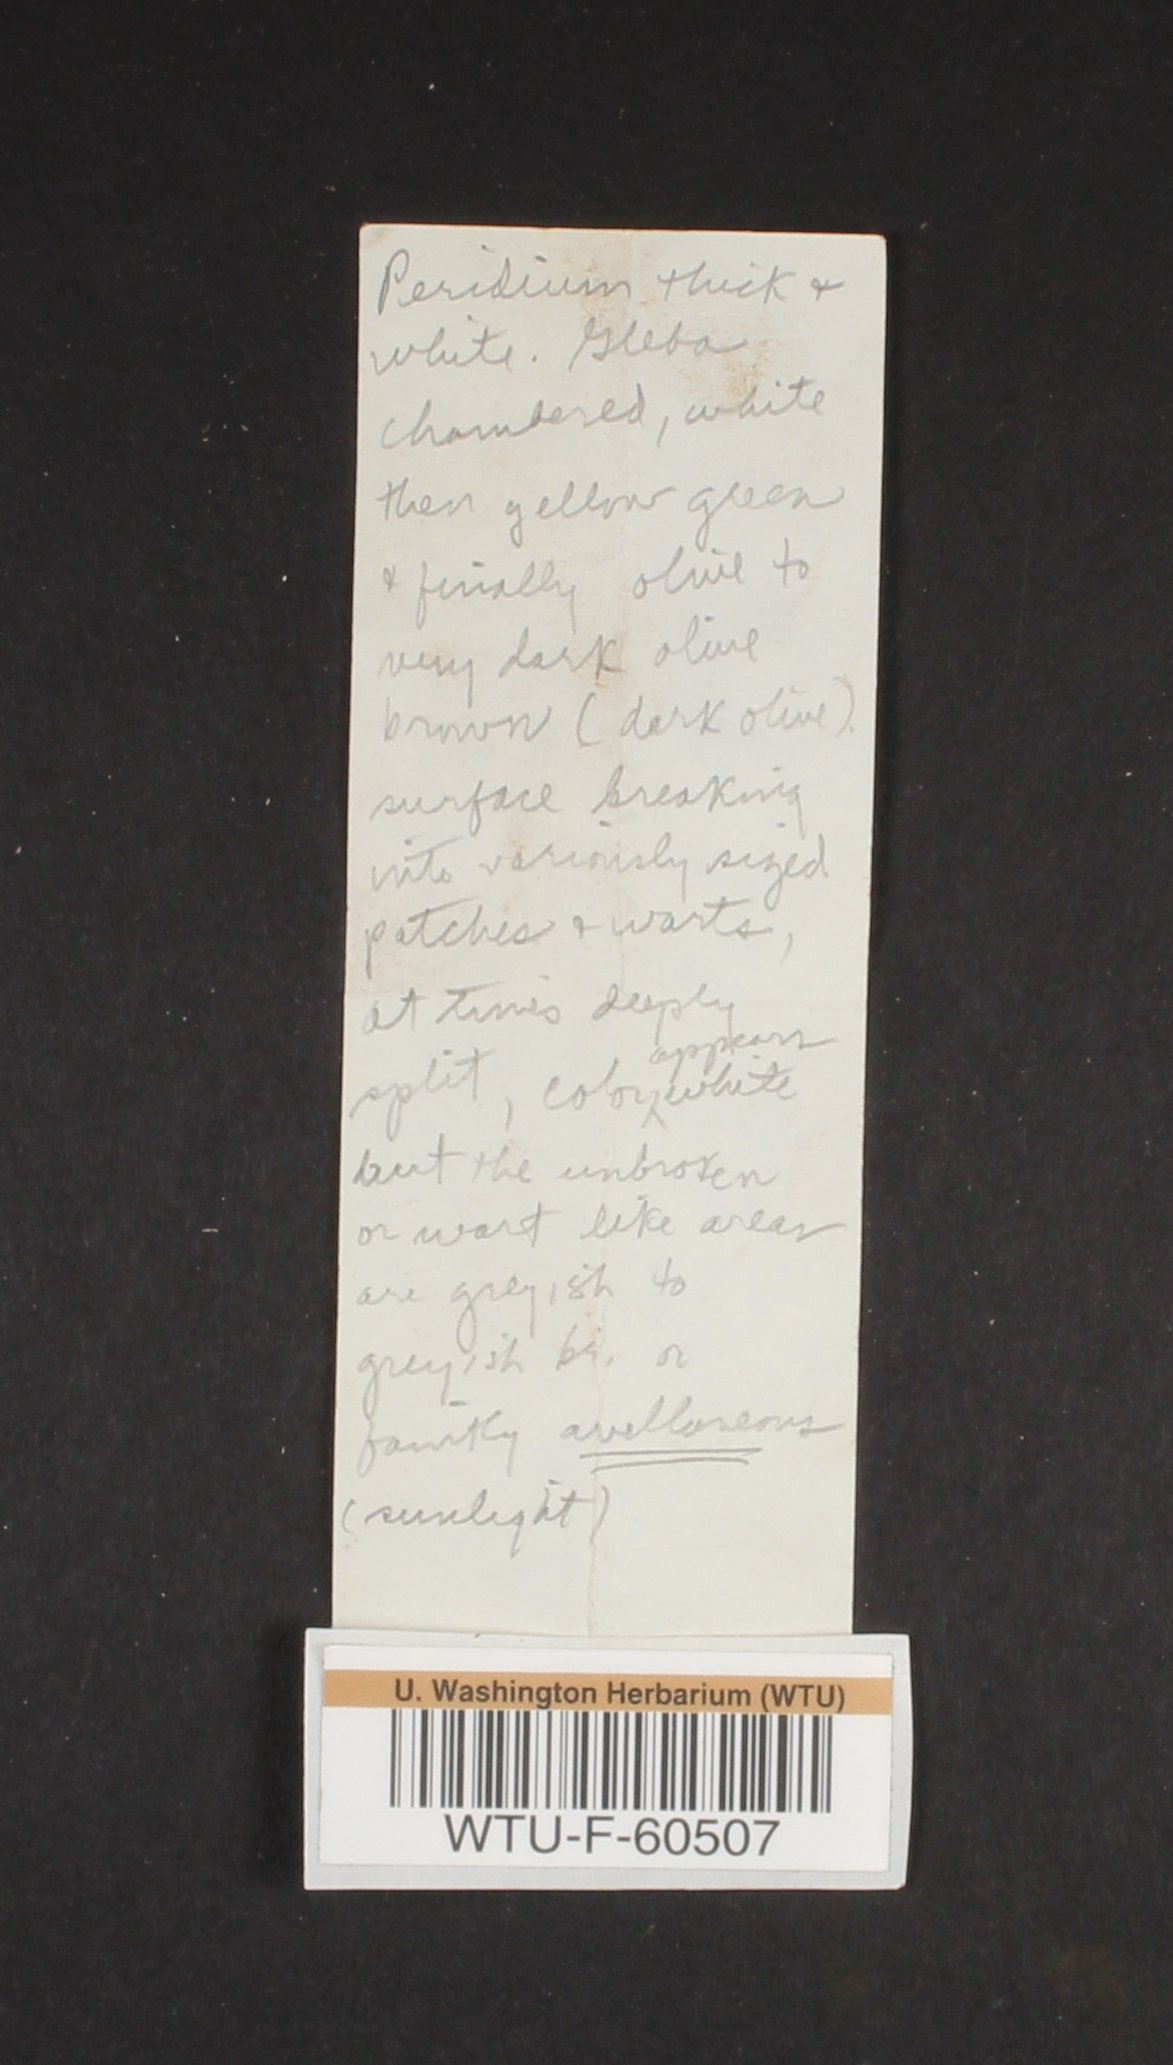 Peridium thick &
white. Gleba
chambered, white
then yellow green
& finally olive to
very dark olive
brown (dark olive).
surface breaking
into variously sized
patches & warts,
at times deeply
split, color appears white
but the unbroken
or wart like areas
are greyish to
greyish br. or
faintly avellaneous
(sunlight)
U. Washington Herbarium (WTU)
WTU-F-60507